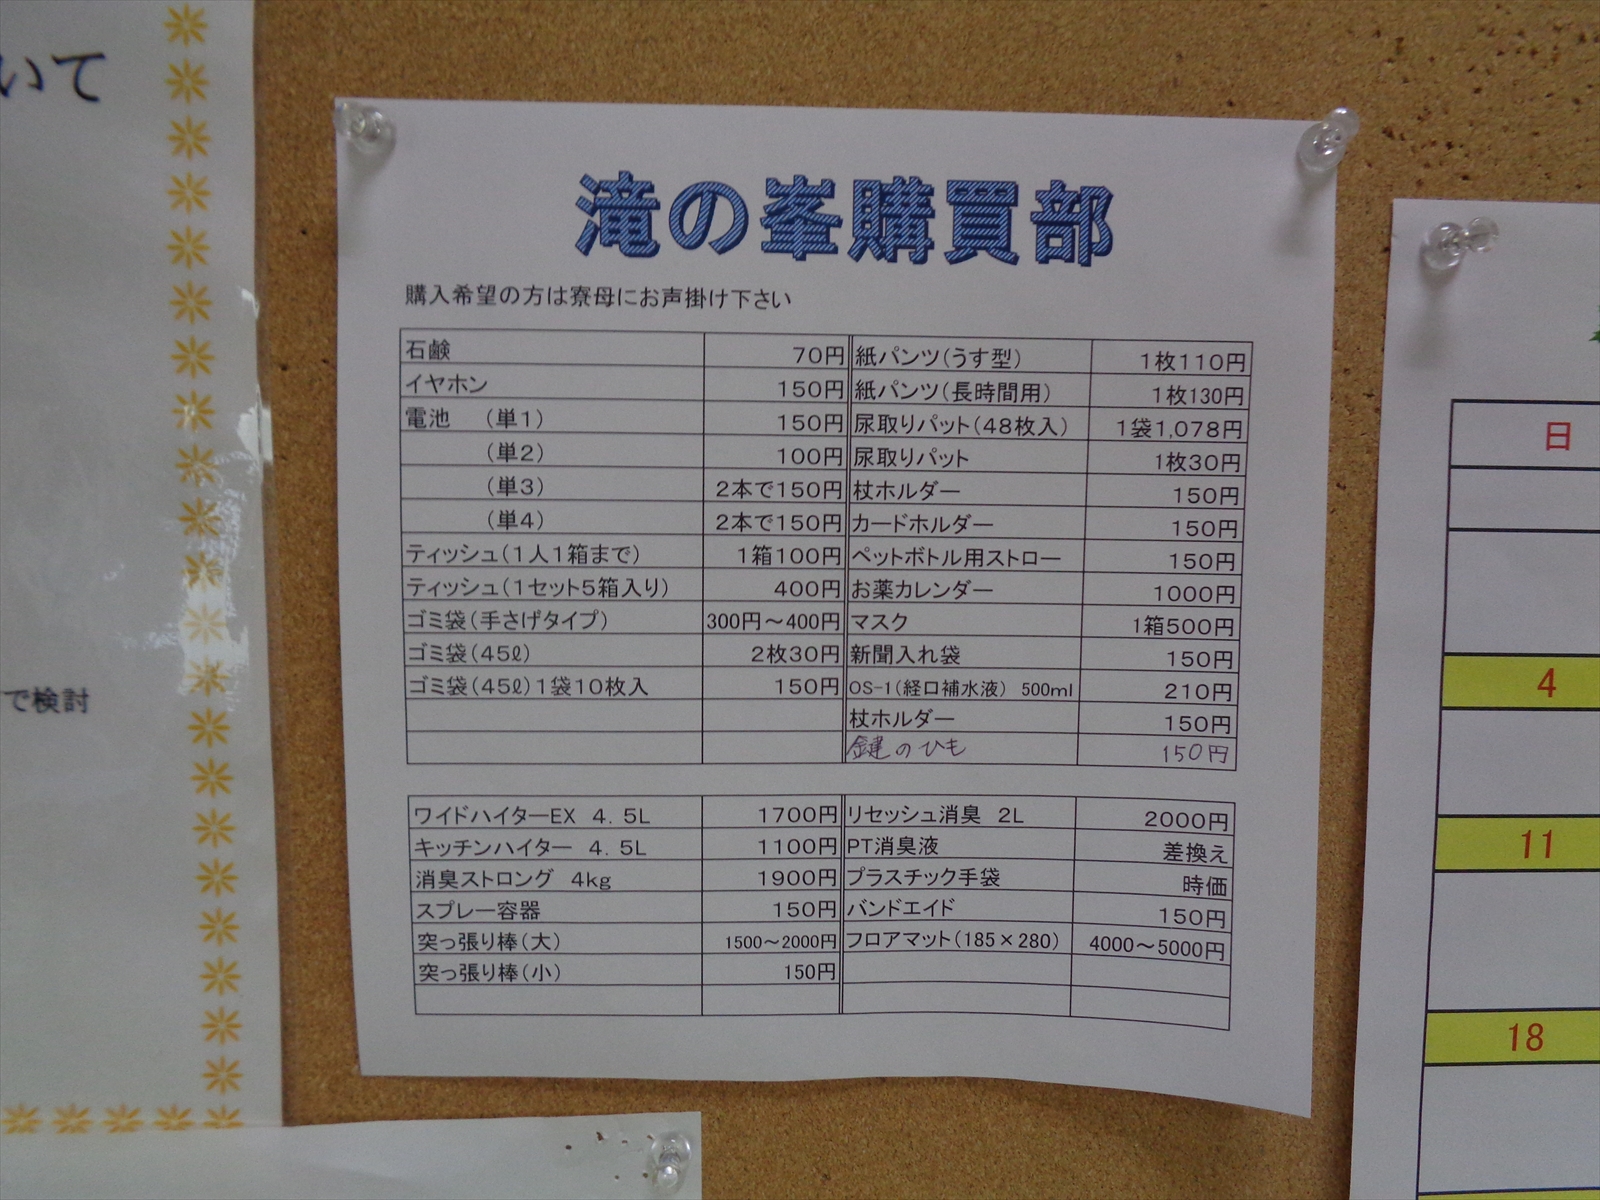 いて
で検討
滝の峯購買部
購入希望の方は寮母にお声掛け下さい
石鹸 70円 紙パンツ(うす型) 1枚110円
イヤホン 150円 紙パンツ(長時間用) 1枚130円
電池 (単1) 150円 尿取りパット(48枚入) 1袋1,078円
(単2) 100円 尿取りパット 1枚30円
(単3) 2本で150円 杖ホルダー 150円
(単4) 2本で150円 カードホルダー 150円
ティッシュ(1人1箱まで) 1箱100円 ペットボトル用ストロー 150円
ティッシュ(1セット5箱入り) 400円 お薬カレンダー 1000円
ゴミ袋(手さげタイプ) 300円～400円 マスク 1箱500円
ゴミ袋(45ℓ) 2枚30円 新聞入れ袋 150円
ゴミ袋(45ℓ)1袋10枚入 150円 OS-1(経口補水液) 500ml 210円
杖ホルダー 150円
鍵のひも 150円
ワイドハイターEX 4.5L 1700円 リセッシュ消臭 2L 2000円
キッチンハイター 4.5L 1100円 PT消臭液 差換え
消臭ストロング 4kg 1900円 プラスチック手袋 時価
スプレー容器 150円 バンドエイド 150円
突っ張り棒(大) 1500～2000円 フロアマット(185×280) 4000～5000円
突っ張り棒(小) 150円
日
4
11
18